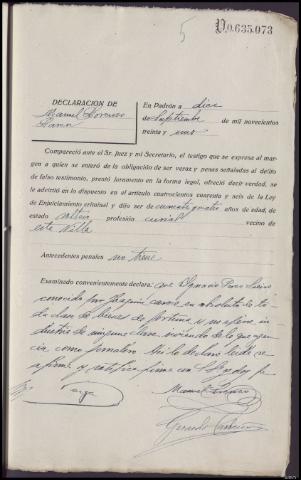 5
P.0.635.073
DECLARACION DE
Manuel Lorenzo
En Padrón a diez
de Septiembre de mil novecientos
treinta y uno
Compareció ante el Sr. Juez y mi Secretario, el testigo que se expresa al mar-
gen a quien se enteró de la obligación de ser veraz y penas señaladas al delito
de falso testimonio, prestó juramento en la forma legal, ofreció decir verdad, se
le advirtió en lo dispuesto en el artículo cuatrocientos cuarenta y seis de la Ley
de Enjuiciamiento criminal y dijo ser de cuarenta y cuatro años de edad, de
estado soltero profesión curial vecino de
esta Villa
Antecedentes penales no tiene
Examinado convenientemente declara: que Ignacio
conocido por carece en absoluto de to-
da clase de bienes de fortuna y no ejerce in-
dustria de ninguna clase viviendo de lo que agen-
cia como jornalero. Así lo declaró leída se
afirmó y ratifica firma con S.Sª y doy fe
Manuel Lorenzo